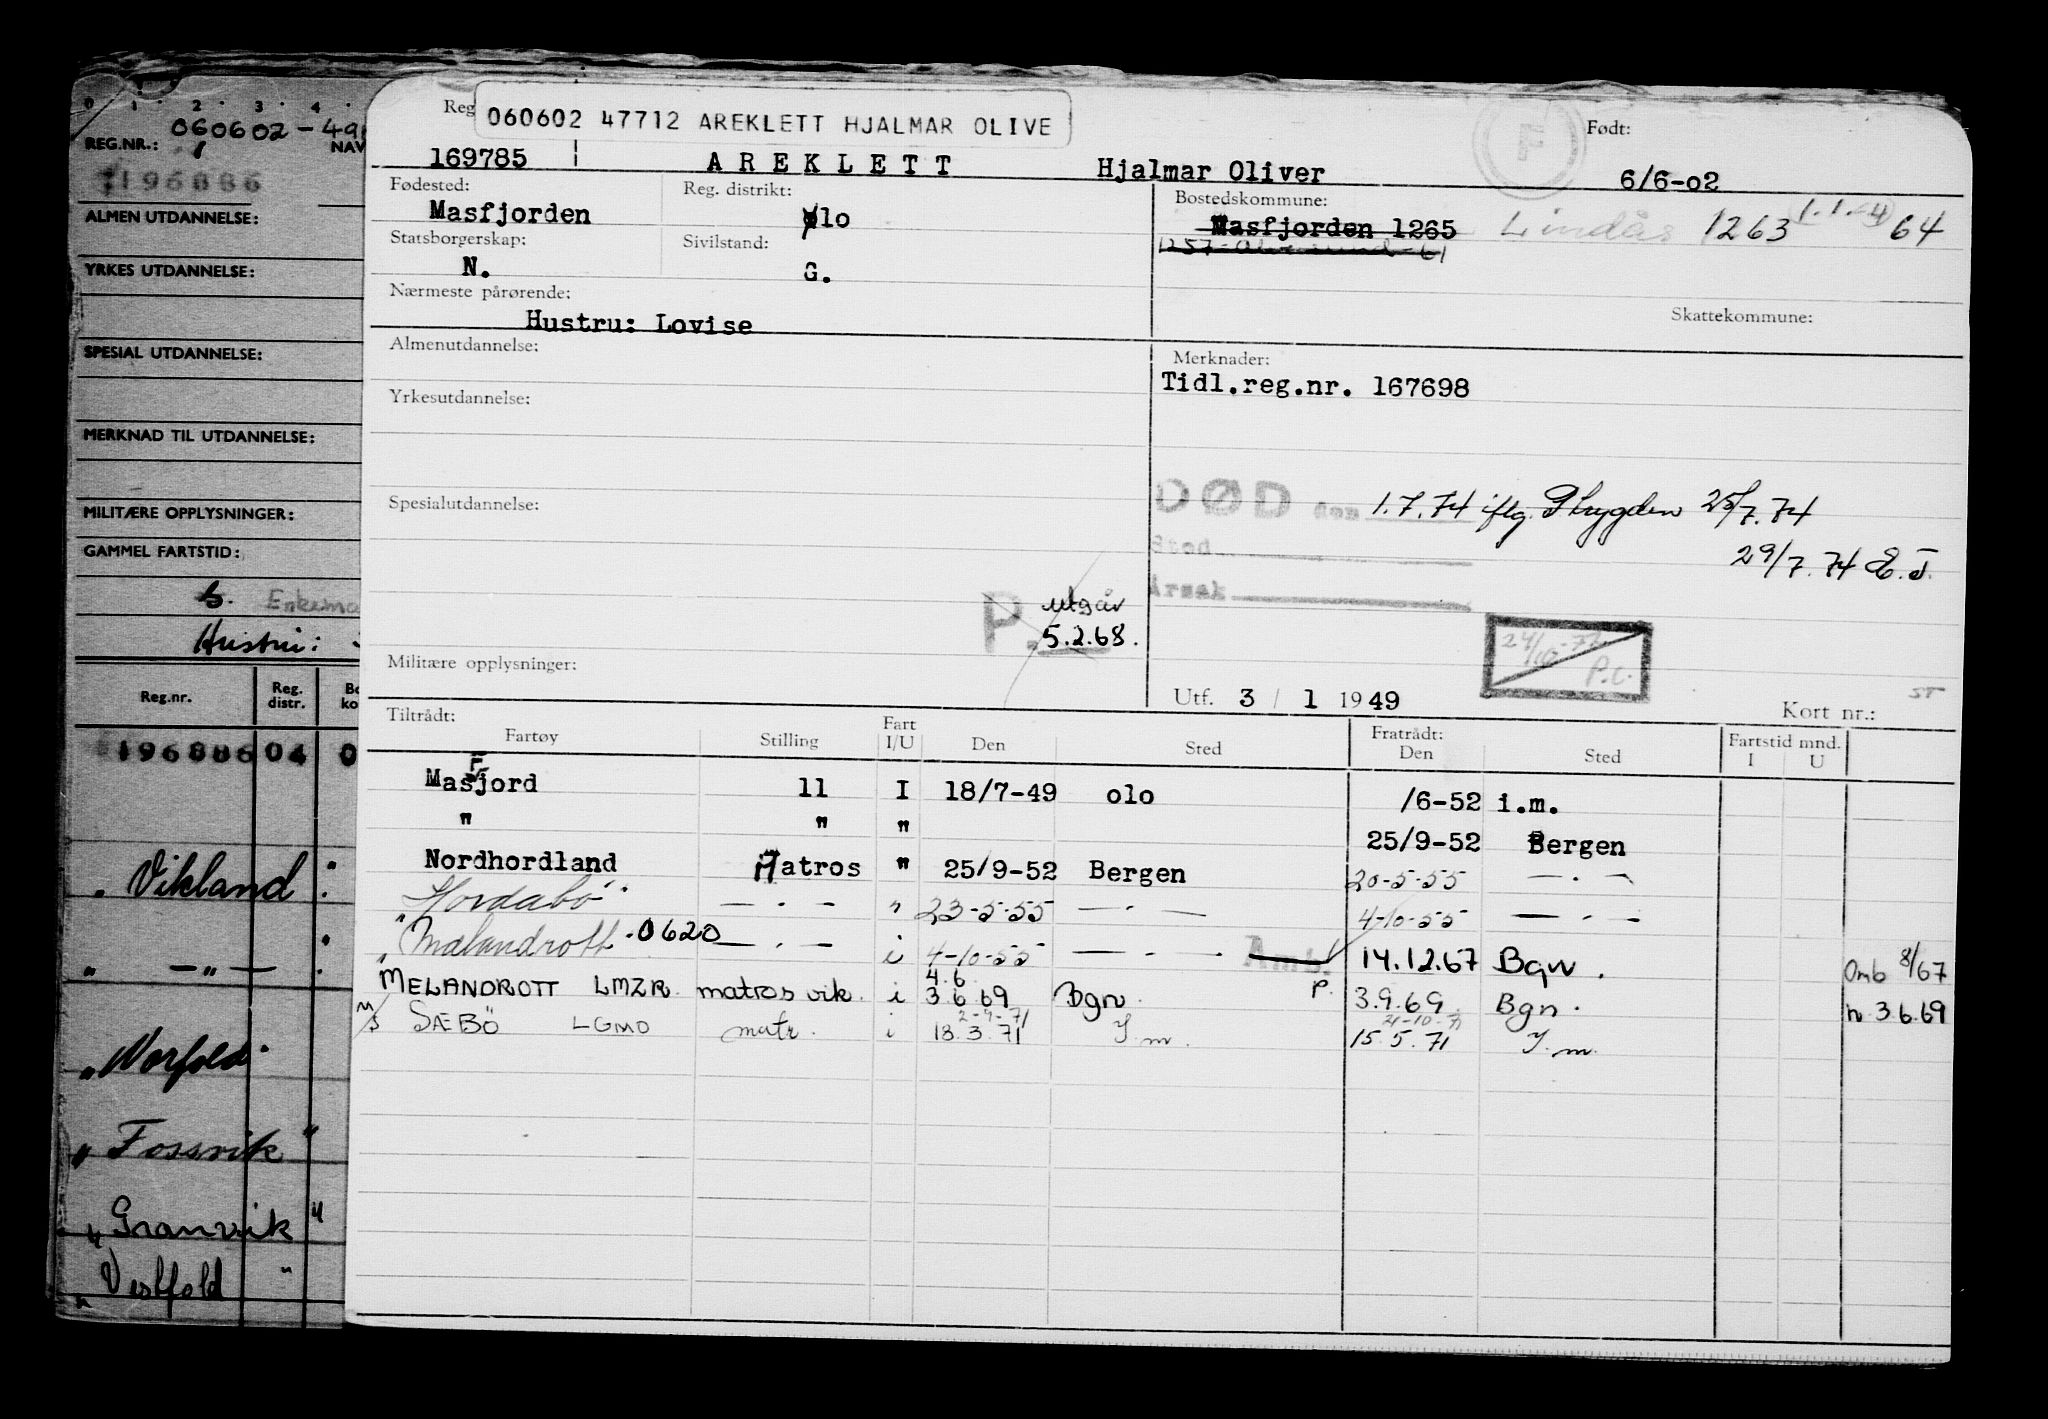 0 1 2 3 4
REG.NR.:
060602-49
NAV
196886
ALMEN UTDANNELSE:
YRKES UTDANNELSE:
SPESIAL UTDANNELSE:
MERKNAD TIL UTDANNELSE:
MILITÆRE OPPLYSNINGER:
GAMMEL FARTSTID:
Enkema
Hustru:
Reg.nr. Reg. distr. Bo ko
196886 04 0
" Vikland "
" — " — "
" Norfold "
" Fossvik "
" Granvik "
" Vestfold "
Reg
060602 47712 AREKLETT HJALMAR OLIVE
F
Født:
169785 AREKLETT Hjalmar Oliver 6/6-02
Fødested: Reg. distrikt: Bostedskommune:
Masfjorden olo Masfjorden 1265 Lindås 1263 1.1. 64
Statsborgerskap: Sivilstand:
N. G.
Nærmeste pårørende:
Skattekommune:
Hustru: Lovise
Almenutdannelse:
Merknader:
Tidl.reg.nr. 167698
Yrkesutdannelse:
Spesialutdannelse:
DØD den 1.7.74 iflg. 25/7.74
Sted 29/7.74 E.J.
Årsak
P. utgår
5.2.68.
24/10-72
P.C.
Militære opplysninger:
Utf. 3 / 1 1949
ST
Kort nr.:
Tiltrådt: Fratrådt: Fartstid mnd.
Fartøy Stilling Fart I/U Den Sted Den Sted I U
Masfjord 11 I 18/7-49 olo /6-52 i.m.
" " " 25/9-52 Bergen
Nordhordland Matros " 25/9-52 Bergen 20-5-55 — " —
" Hordabö — " — " 23-5-55 — " — 4-10-55 — " —
" Melandrott 0620 — " — i 4-10-55 — " — Amb. 14.12.67 Bgn. Omb 8/67
MELANDROTT LMZR matros vik. i 4.6 3.6.69 Bgn. P. 3.9.69 Bgn. 3.6.69
2-9-71 21-10-71
M/S SÆBÖ LGMO matr. i 18.3.71 I.m. 15.5.71 I.m.